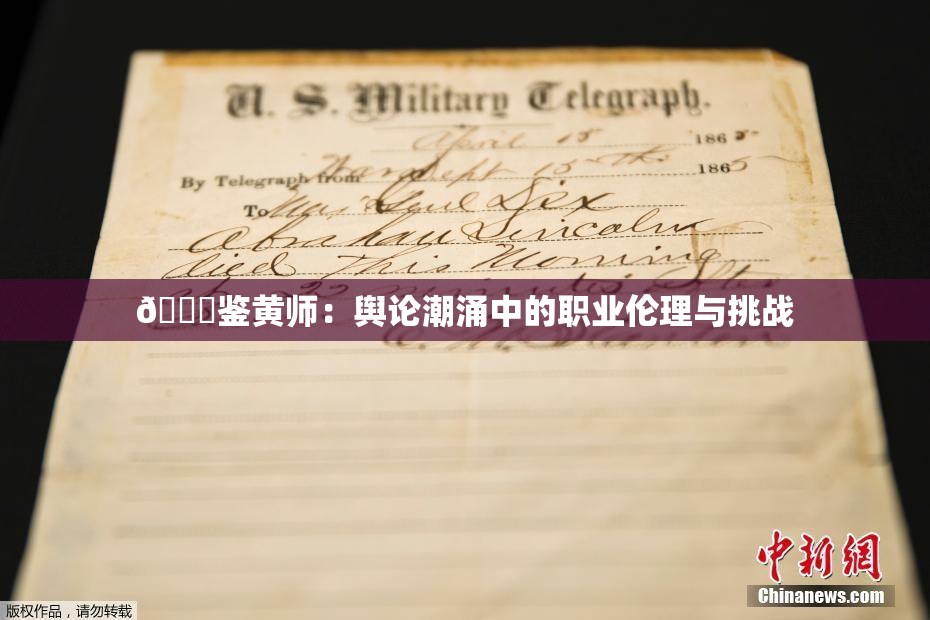 U. S. Military Telegraph.
April 15 1865
By Telegraph from War Dept 15th 1865
To Maj Genl Dix
Abraham Lincoln
died This Morning
22 minutes after
ð鉴黄师：舆论潮涌中的职业伦理与挑战
中新网
Chinanews.com
版权作品，请勿转载